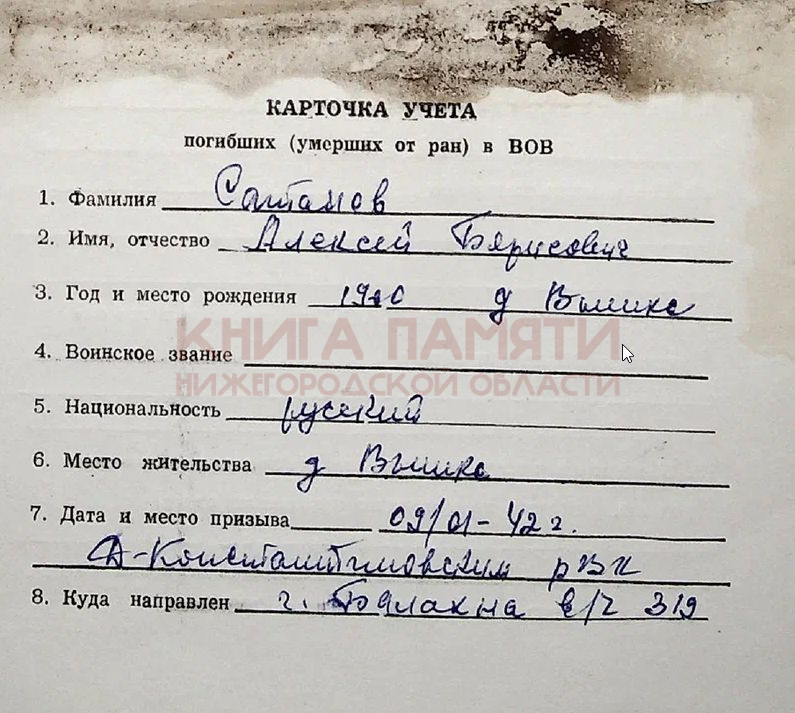 КАРТОЧКА УЧЕТА
погибших (умерших от ран) в ВОВ
1. Фамилия Сатанов
2. Имя, отчество Алексей Борисович
3. Год и место рождения 1910 д
КНИГА ПАМЯТИ
4. Воинское звание
НИЖЕГОРОДСКОЙ ОБЛАСТИ
5. Национальность русский
6. Место жительства д
7. Дата и место призыва 09/01-42 г.
Д-Константиновским РВК
8. Куда направлен г. Балахна в/ч 319